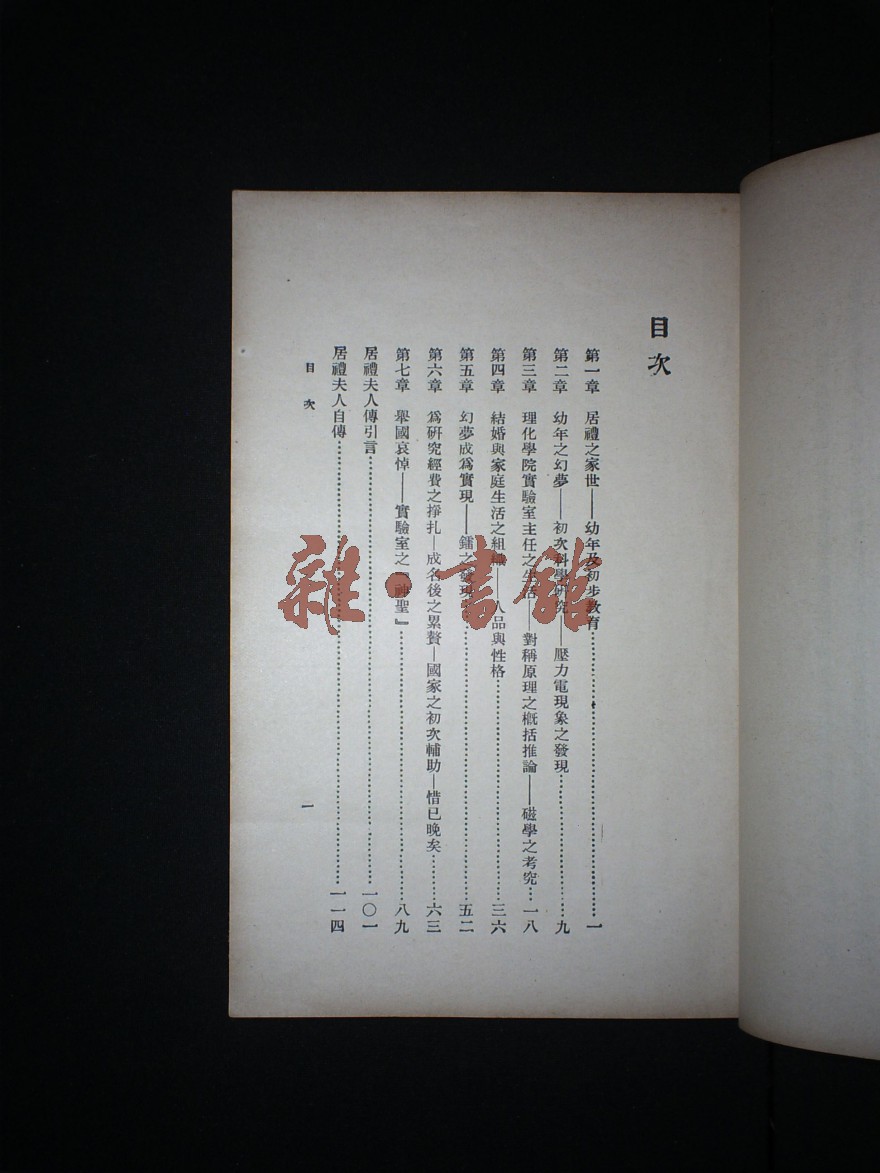 目次
第一章 居禮之家世——幼年及初步教育……一
第二章 幼年之幻夢——初次科學研究——壓力電現象之發現……九
第三章 理化學院實驗室主任之生活——對稱原理之概括推論——磁學之考究……一八
第四章 結婚與家庭生活之組織——人品與性格……三六
第五章 幻夢成爲實現——鐳之發現……五二
第六章 爲研究經費之掙扎—成名後之累贅—國家之初次輔助—惜已晚矣……六三
第七章 舉國哀悼——實驗室之『神聖』……八九
居禮夫人傳引言……一〇一
居禮夫人自傳……一一四
目次 一
雜·書館